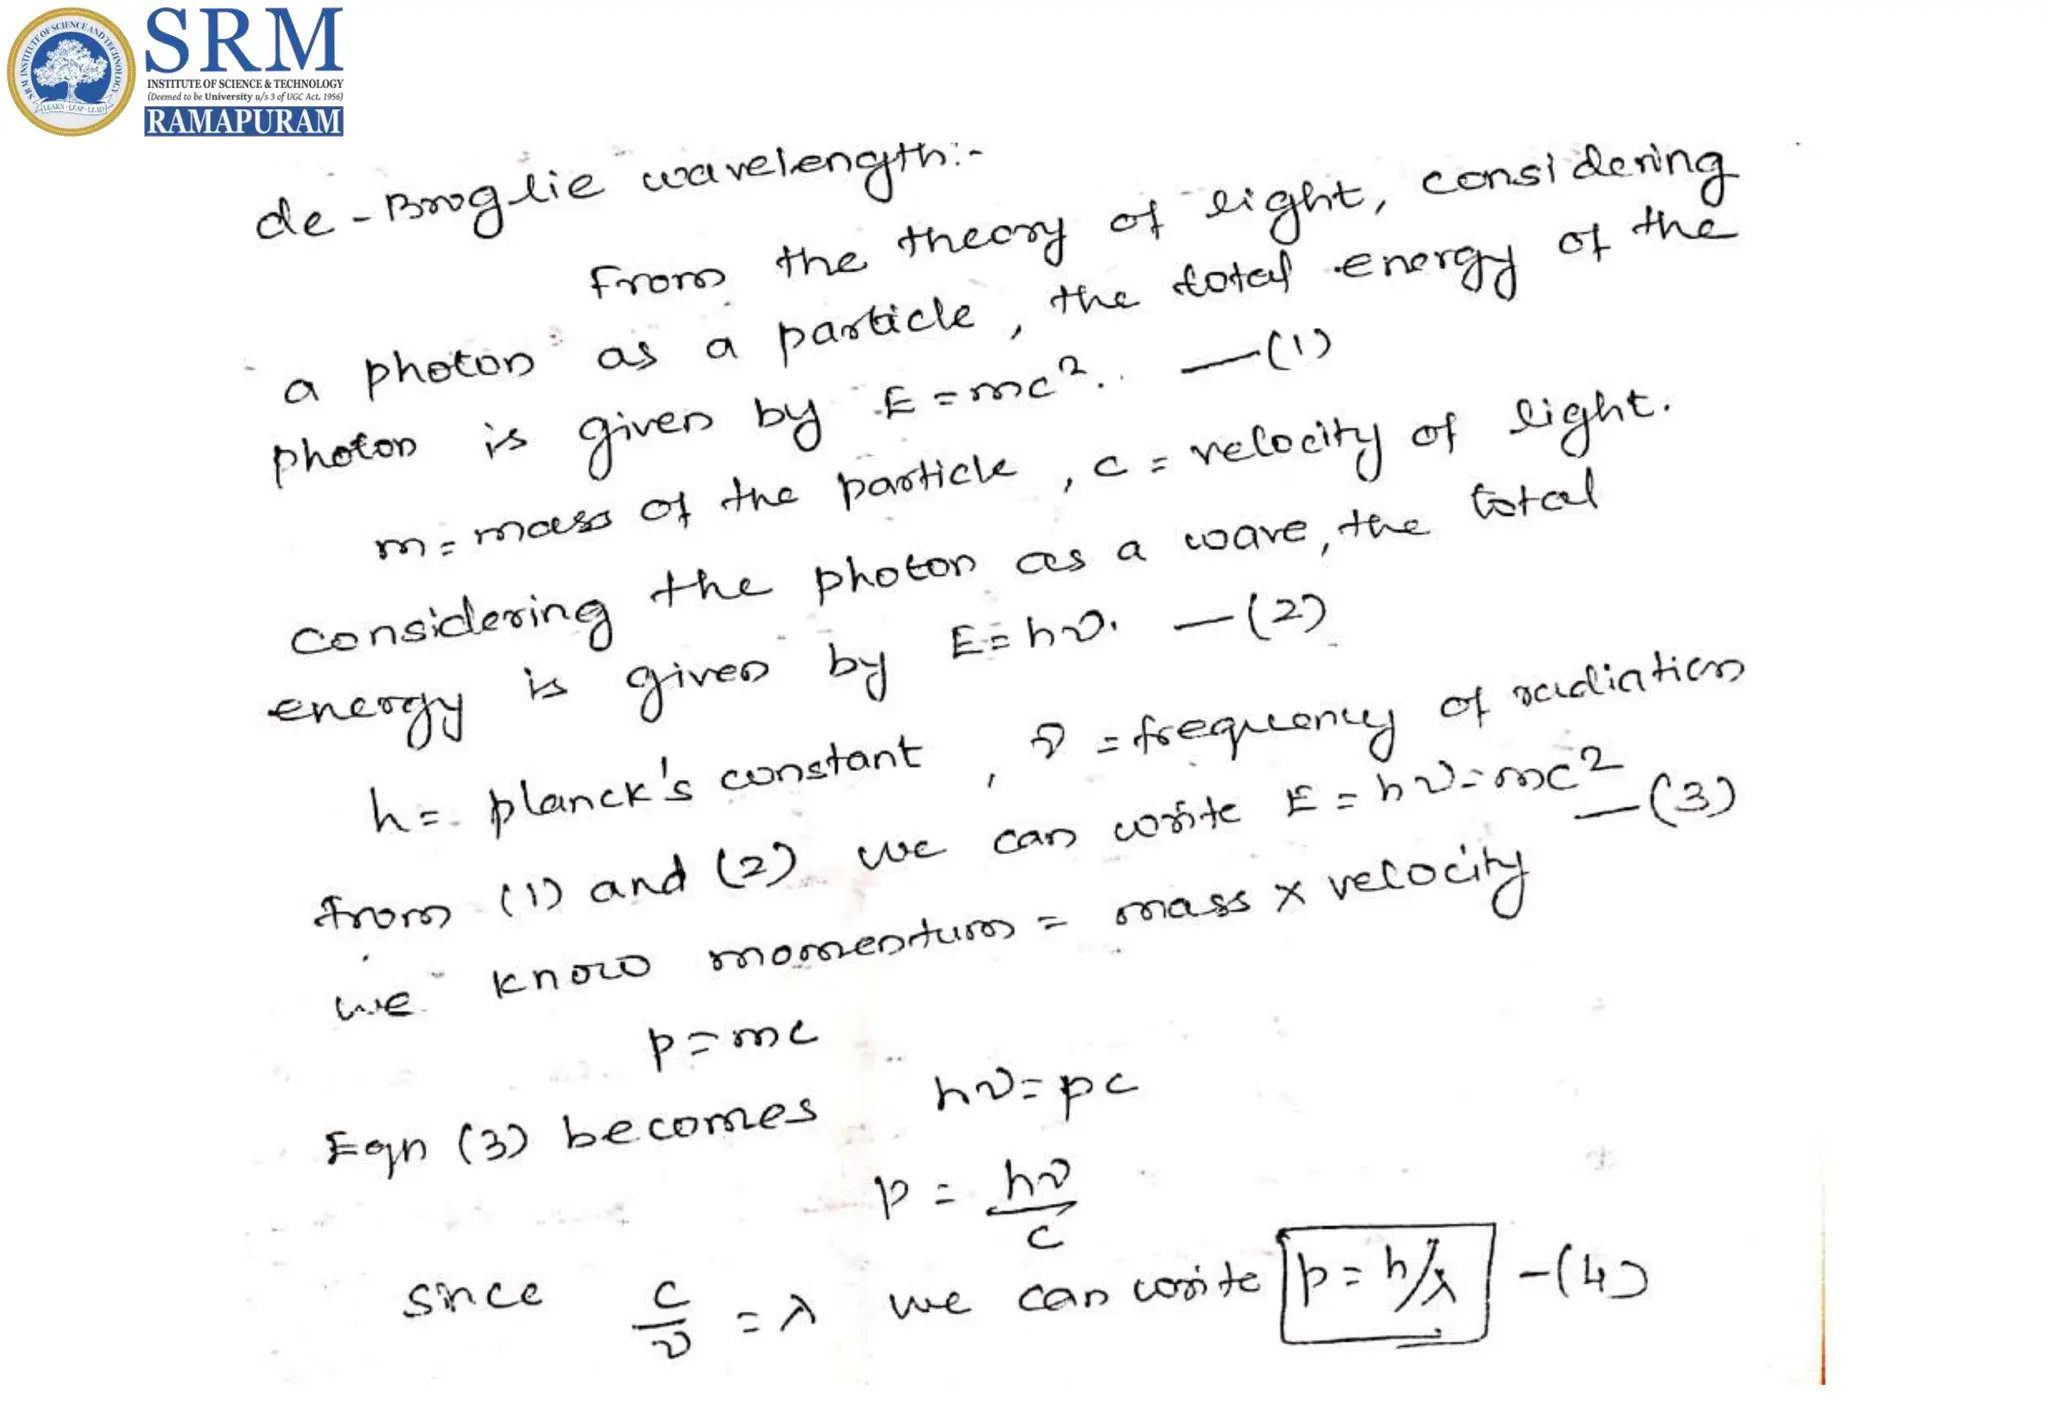 SRM
INSTITUTE OF SCIENCE & TECHNOLOGY
(Deemed to be University u/s 3 of UGC Act, 1956)
RAMAPURAM
SRM INSTITUTE OF SCIENCE AND TECHNOLOGY
LEARN - LEAP - LEAD
de-Broglie wavelength:-
From the theory of light, considering
a photon as a particle, the total energy of the
photon is given by E = mc². —(1)
m = mass of the particle, c = velocity of light.
Considering the photon as a wave, the total
energy is given by E = hν. —(2)
h = planck's constant, ν = frequency of radiation
from (1) and (2) we can write E = hν = mc² —(3)
we know momentum = mass x velocity
p = mc
Eqn (3) becomes hν = pc
p = hν/c
since c/ν = λ we can write p = h/λ —(4)